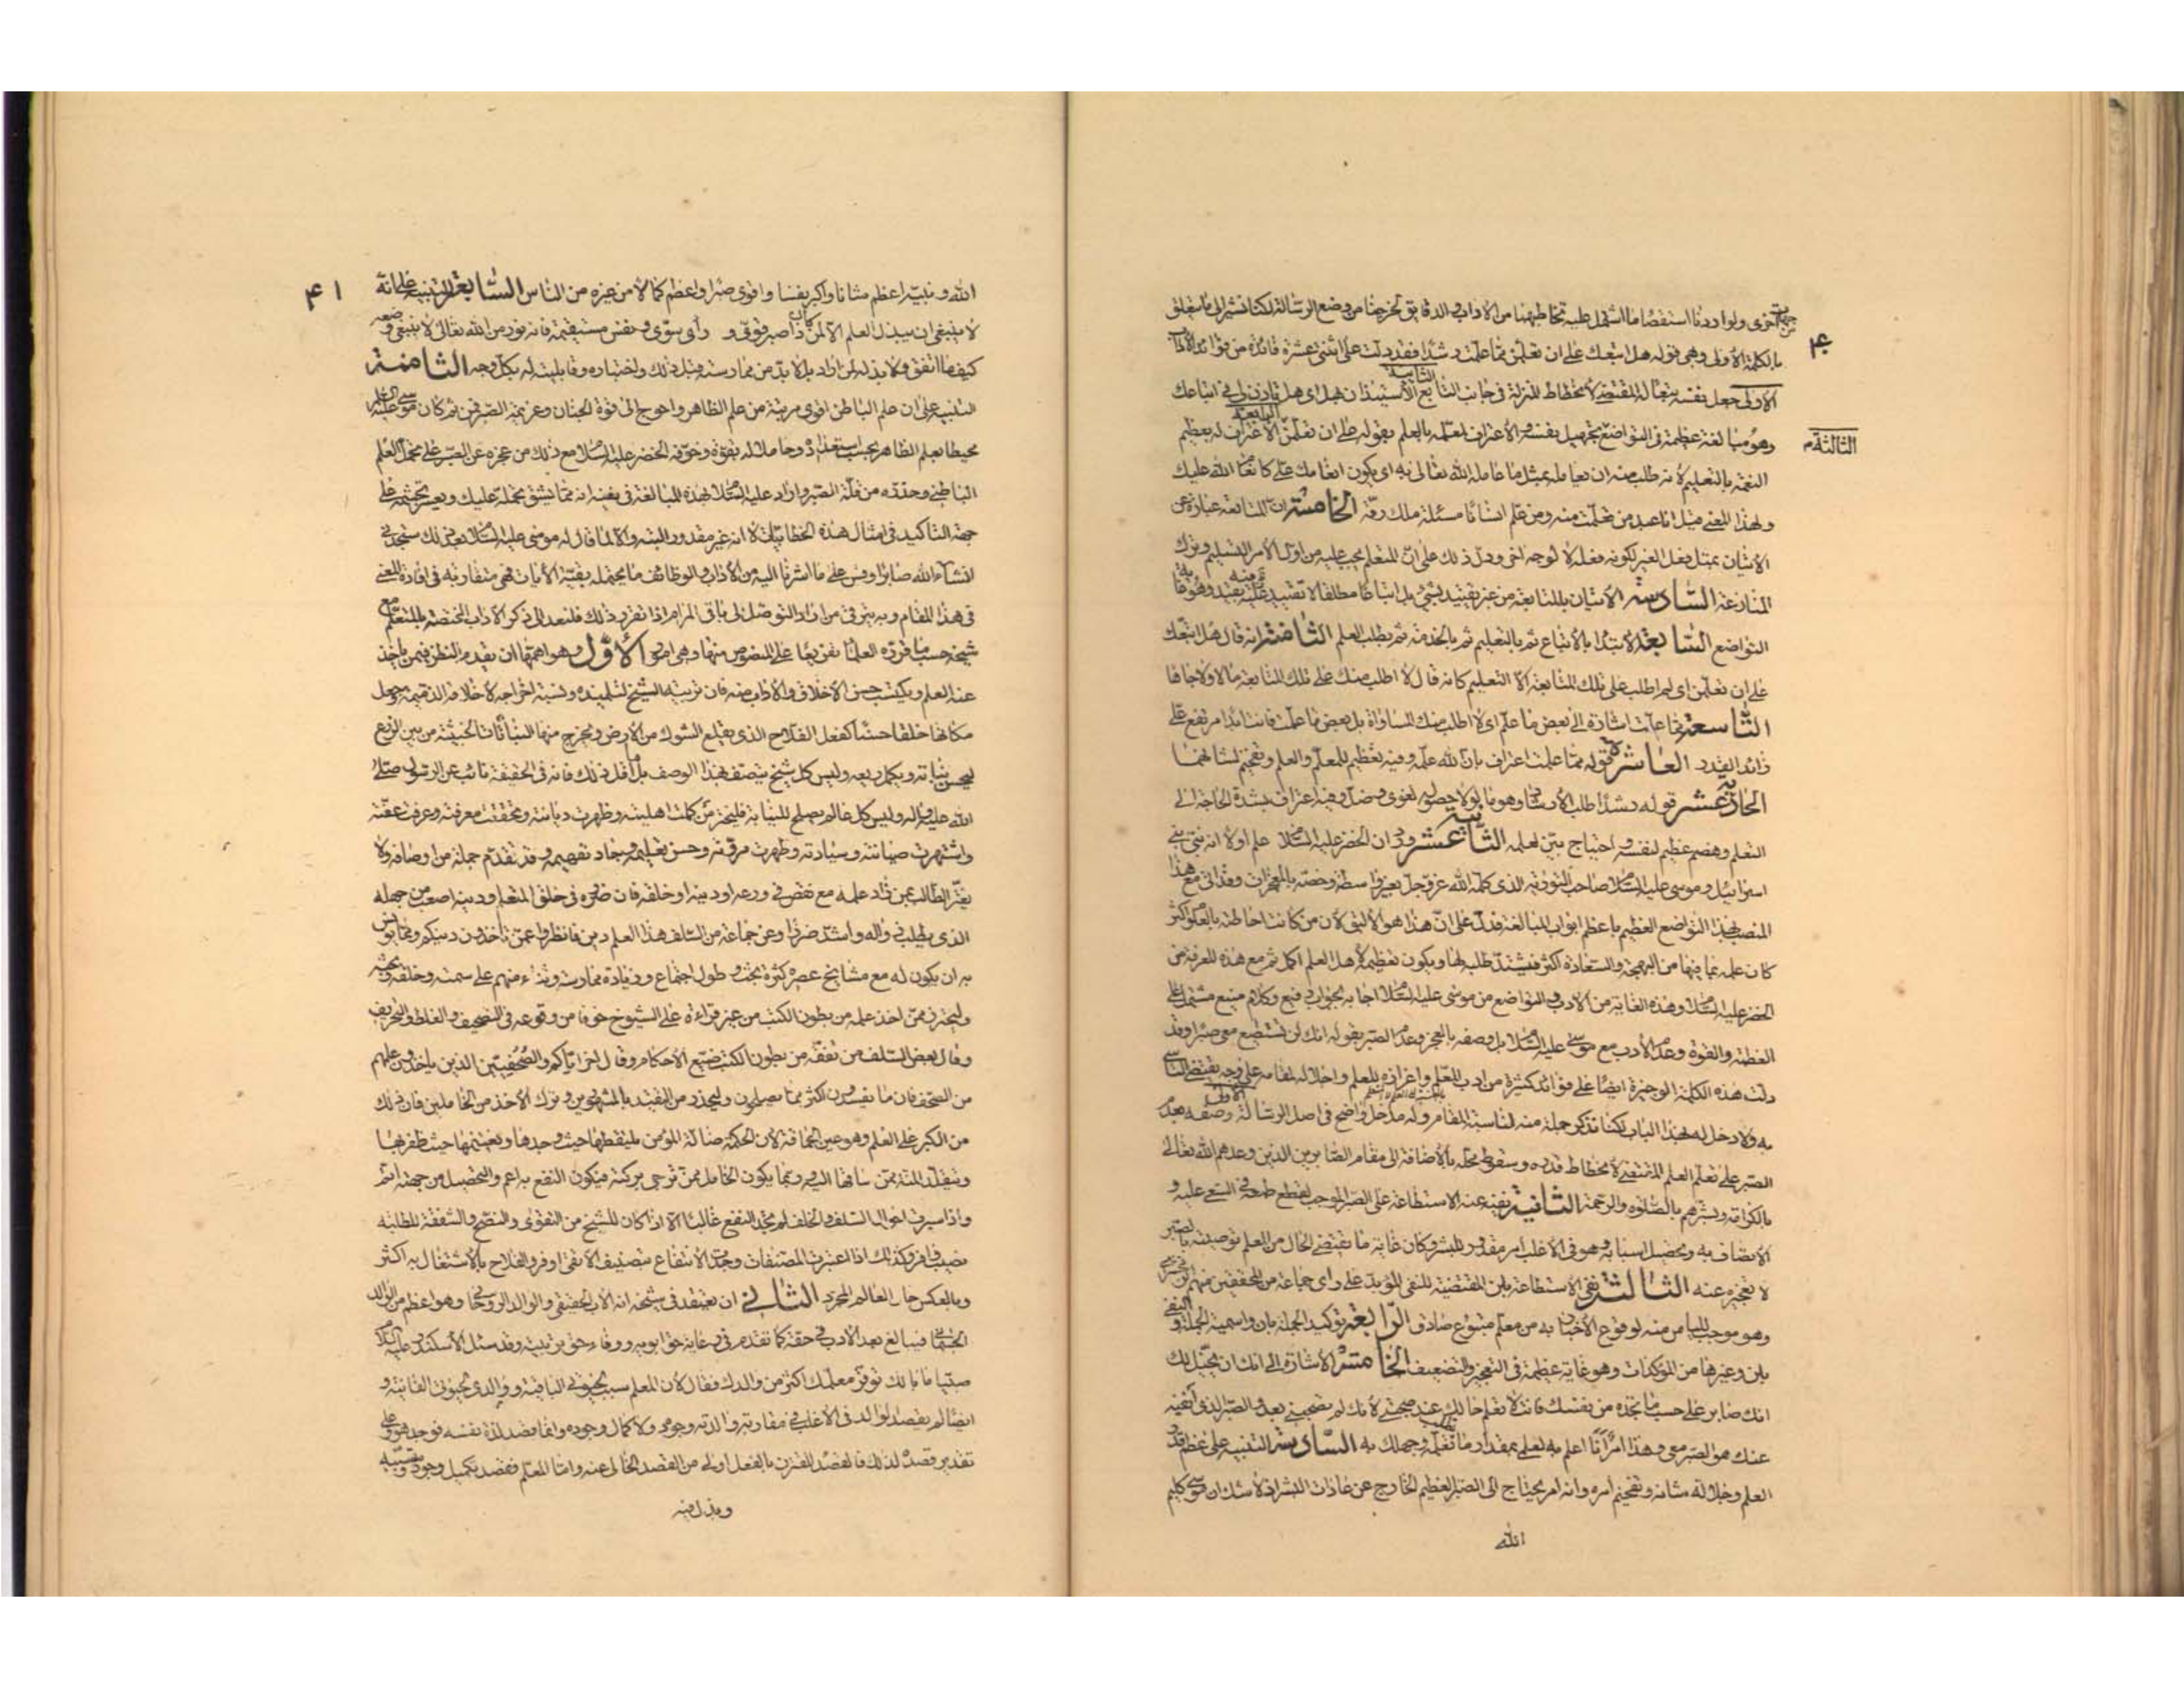 ۴۰
جهات
من اخرى ولو اردنا استقصاء ما اشتمل عليه تخاطبهما من الاداب والدقايق لخرجنا من وضع الرسالة لكنا نشير الى ما يتعلق
بالكلمة الاولى وهى قوله هل اتبعك على ان تعلمن مما علمت رشدا فقد دلت على اثنتى عشرة فائدة من فوائد الادب
الاولى جعل نفسه تبعا له المقتضى لانحطاط المنزلة فى جانب التابع الثانية الاستيذان بهل اى هل تاذن لى فى اتباعك
الثالثة
وهو مبالغة عظيمة فى التواضع تجهيل نفسه والاعتراف لمعلمه بالعلم بقوله على ان تعلمن الرابعة الاعتراف له بعظيم
النعمة بالتعليم لانه طلب منه ان يعامله بمثل ما عامله الله تعالى به اى يكون انعامك على كانعام الله عليك
ولهذا المعنى قيل انا عبد من تعلمت منه ومن علم انسانا مسئلة ملك رقه الخامسة ان المتابعة عبارة عن
الاتيان بمثل فعل الغير لكونه فعله لا لوجه اخر ودل ذلك على ان المتعلم يجب عليه من اول الامر التسليم وترك
المنازعة السادسة الاتيان بالمتابعة من غير تقييد بشئ بل اتباعا مطلقا لا تقييد عليه فيه بقيد وهو غاية
التواضع السابعة الابتداء بالاتباع ثم بالتعليم ثم بالخدمة ثم بطلب العلم الثامنة انه قال هل اتبعك
على ان تعلمن اى لم اطلب على تلك المتابعة الا التعليم كانه قال لا اطلب منك على تلك المتابعة مالا ولا جاها
التاسعة مما علمت اشارة الى بعض ما علم اى لا اطلب منك المساواة بل بعض ما علمت فانت ابدا مرتفع على
زائد القدر العاشرة قوله مما علمت اعتراف بان الله علمه وفيه تعظيم للمعلم والعلم وتفخيم لشانهما
الحادية عشر قوله رشدا طلب الارشاد وهو ما لولا حصوله لغوى وضل وفيه اعتراف بشدة الحاجة الى
التعلم وهضم عظيم لنفسه واحتياج بين لعلمه الثانية عشر ورد ان الخضر عليه السلام علم اولا انه نبى بنى
اسرائيل وموسى عليه السلام صاحب التوراة الذى كلمه الله عز وجل بغير واسطة وخصه بالمعجزات وقد اتى مع هذا
المنصب بهذا التواضع العظيم باعظم ابواب المبالغة فدل على ان هذا هو الاليق لان من كانت احاطته بالعلوم اكثر
كان علمه بما فيها من البهجة والسعادة اكثر فيشتد طلبه لها ويكون تعظيمه لاهل العلم اكمل ثم مع هذه المعرفة من
الخضر عليه السلام وهذه الغاية من الادب والتواضع من موسى عليه السلام اجابه بجواب رفيع وكلام منيع مشتمل على
العظمة والقوة وعدم الادب مع موسى عليه السلام بل وصفه بالعجز وعدم الصبر بقوله انك لن تستطيع معى صبرا وقد
دلت هذه الكلمة الوجيزة ايضا على فوائد كثيرة من ادب المعلم واعزازه للعلم واجلاله لمقامه على وجه يقتضى التاسى
به ولا دخل له بهذا الباب لكنا نذكر جملة منه لمناسبة المقام وله مدخل واضح فى اصل الرسالة الاولى وصفه بعدم
الصبر على تعلم العلم المقتضى لانحطاط قدره وسقوط محله بالاضافة الى مقام الصابرين الذين وعدهم الله تعالى
بالكرامة وبشرهم بالصلوة والرحمة الثانية نفيه عنه الاستطاعة على الصبر الموجب لقطع طمعه فى السعى عليه و
الاتصاف به وتحصيل اسبابه وهو فى الاغلب امر مقدور للبشر وكان غاية ما يقتضى الحال من العلم توصيته بالصبر
لا تعجيزه عنه الثالثة نفى الاستطاعة بلن المقتضية للنفى المؤبد على راى جماعة من المحققين منهم الزمخشرى
وهو موجب للياس منه لوقوع الاخبار به من معلم متبوع صادق الرابعة توكيد الجملة بان واسمية الجملة والنفى
بلن وغيرها من المؤكدات وهو غاية عظيمة فى التعجيز والتضعيف الخامسة الاشارة الى انك ان تخيل لك
انك صابر على حسب ما تجده من نفسك فانت لا تعلم حالك عند صحبتى لانك لم تصحبنى بعد والصبر الذى انفيه
عنك هو الصبر معى وهذا امر انا اعلم به لعلمى بمقدار ما تطلب تعلمه وجهلك به السادسة التنبيه على عظم قدر
العلم وجلالة شانه وتفخيم امره وانه امر يحتاج الى الصبر العظيم الخارج عن عادات البشر اذ لا شك ان موسى كليم
الله
۴۱
الله ونبيه اعظم شانا واكبر نفسا واقوى صبرا واعظم كمالا من غيره من الناس السابعة التنبيه على انه
لا ينبغى ان يبذل العلم الا لمن كان ذا صبر قوى و رأى سوى ونفس مستقيمة فانه نور من الله تعالى لا ينبغى وضعه
كيف ما اتفق ولا بذله لمن اراد بل لا بد من ممارسته قبل ذلك واختباره وقابليته له بكل وجه الثامنة
التنبيه على ان علم الباطن اقوى مرتبة من علم الظاهر واحوج الى قوة الجنان وعزيمة الصبر فمن ثم كان موسى عليه السلام
محيطا بعلم الظاهر بحسب استعداده وحاملا له بقوة وخوفه الخضر عليه السلام مع ذلك من عجزه عن الصبر على تحمل العلم
الباطنى وحذره من قلة الصبر واراد عليه السلام بهذه المبالغة فى نفيه انه مما يشق تحمله عليك ويعسر تجشمه على
جهة التاكيد فى امثال هذه الخطابيات لا انه غير مقدور البتة والا لما قال له موسى عليه السلام بعد ذلك ستجدنى
انشاء الله صابرا وقس على ما اشرنا اليه من الاداب والوظائف ما يحتمله بقية الايات فهى متقاربة فى افادة المعنى
فى هذا المقام وبه يترقى من اراد التوصل الى باقى المرام اذا تقرر ذلك فلنعد الى ذكر الاداب المختصة بالمتعلم مع
شيخه حسب ما قرره العلماء تفريعا على المنصوص منها وهى امور الاول وهو اهمها ان يقدم النظر فيمن ياخذ
عنه العلم ويكتسب حسن الاخلاق والاداب منه فان تربية الشيخ لتلميذه ونسبة اخراجه لاخلاقه الذميمة وجعل
مكانها خلقا حسنا كفعل الفلاح الذى يقلع الشوك من الارض ويخرج منها النباتات الخبيثة من بين الزرع
ليحسن نباته ويكمل ريعه وليس كل شيخ يتصف بهذا الوصف بل ما اقل ذلك فانه فى الحقيقة نائب عن الرسول صلى
الله عليه واله وليس كل عالم يصلح للنيابة فليختر من كملت اهليته وظهرت ديانته وتحققت معرفته وعرفت عفته
واشتهرت صيانته وسيادته وظهرت مروته وحسن تعليمه وجاد تفهيمه وقد تقدم جملة من اوصافه ولا
يغتر الطالب بمن زاد علمه مع نقص فى ورعه او دينه او خلقه فان ضرره فى خلق المتعلم ودينه اصعب من الجهل
الذى يطلب زواله واشد ضررا وعن جماعة من السلف هذا العلم دين فانظروا عمن تاخذون دينكم ومما يونس
به ان يكون له مع مشايخ عصره كثرة بحث وطول اجتماع وزيادة ممارسة وثناء منهم على سمته وخلقه وبحثه
وليحترز ممن اخذ علمه من بطون الكتب من غير قراءة على الشيوخ خوفا من وقوعه فى التصحيف والغلط والتحريف
وقال بعض السلف من تفقه من بطون الكتب ضيع الاحكام وقال اخر اياكم والصحفيين الذين ياخذون علمهم
من الصحف فان ما يفسدون اكثر مما يصلحون وليحذر من التقيد بالمشهورين وترك الاخذ من الخاملين فان ذلك
من الكبر على العلم وهو عين الحماقة لان الحكمة ضالة المؤمن يلتقطها حيث وجدها ويغتنمها حيث ظفر بها
ويتقلد المنة ممن ساقها اليه وربما يكون الخامل ممن ترجى بركته فيكون النفع به اعم والتحصيل من جهته اتم
واذا سبرت احوال السلف والخلف لم تجد النفع غالبا الا اذا كان للشيخ من التقوى والنصح والشفقة للطلبة
نصيب وافر وكذلك اذا اعتبرت المصنفات وجدت الانتفاع بتصنيف الاتقى اوفر والفلاح بالاشتغال به اكثر
وبالعكس حال العالم المجرد الثانى ان يعتقد فى شيخه انه الاب الحقيقى والوالد الروحانى وهو اعظم من الوالد
الجسمانى فيبالغ بعد الادب فى حقه كما تقدم فى رعاية حق ابوته ووفاء حق تربيته وقد سئل الاسكندر عليه السلام
ما بالك توقر معلمك اكثر من والدك فقال لان المعلم سبب لحيوتى الباقية ووالدى لحيوتى الفانية و
ايضا لم يقصد الوالد فى الاغلب فى مقاربته والدته وجوده ولا كمال وجوده وانما قصد لذة نفسه فوجد هو وعلى
تقدير قصده لذلك فالقصد المقترن بالفعل اولى من القصد الخالى عنه واما المعلم فقصد تكميل وجوده وسببه
وبذل فيه